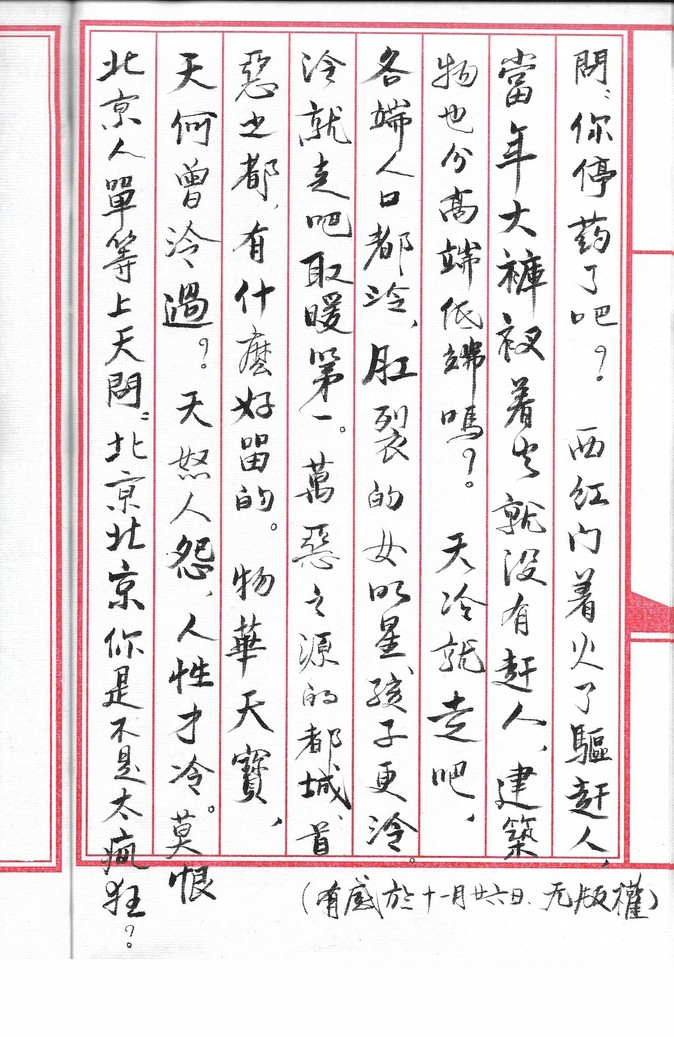 問：你停药了吧？　西红门着火了驅赶人，
當年大褲衩着火就没有赶人，建築
物也分高端低端嗎？。　天冷就走吧，
各端人口都冷，肛裂的女明星、孩子更冷。
冷就走吧取暖第一。萬惡之源的都城、首
惡之都，有什麼好留的。物華天寶，
天何曾冷過？。天怒人怨，人性才冷。莫恨
北京人單等上天問：北京北京你是不是太瘋狂？。
（有感於十一月廿六日、无版權）